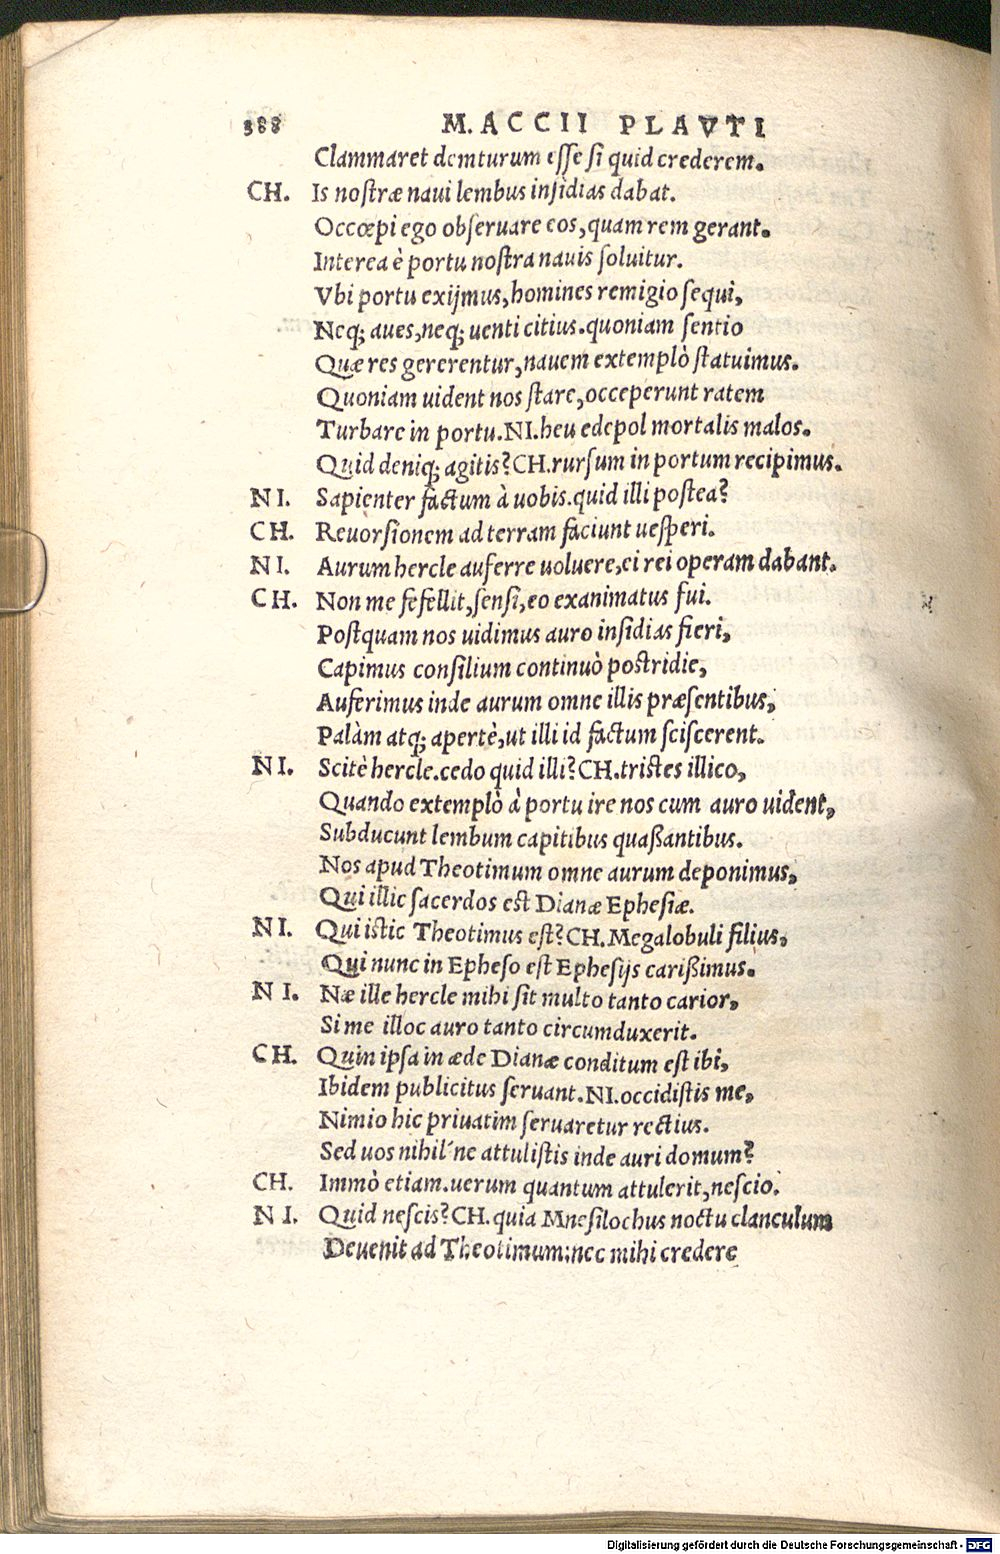 388 M. ACCII PLAVTI
Clammaret demturum esse si quid crederem.
CH. Is nostræ naui lembus insidias dabat.
Occœpi ego obseruare eos, quam rem gerant.
Interea è portu nostra nauis soluitur.
Vbi portu exijmus, homines remigio sequi,
Neq; aues, neq; uenti citius. quoniam sentio
Quæ res gererentur, nauem extemplò statuimus.
Quoniam uident nos stare, occeperunt ratem
Turbare in portu. NI. heu edepol mortalis malos.
Quid deniq; agitis? CH. rursum in portum recipimus.
NI. Sapienter factum à uobis. quid illi postea?
CH. Reuorsionem ad terram faciunt uesperi.
NI. Aurum hercle auferre uoluere, ei rei operam dabant.
CH. Non me fefellit, sensi, eo exanimatus fui.
Postquam nos uidimus auro insidias fieri,
Capimus consilium continuò postridie,
Auferimus inde aurum omne illis præsentibus,
Palàm atq; apertè, ut illi id factum sciscerent.
NI. Scitè hercle. cedo quid illi? CH. tristes illico,
Quando extemplò à portu ire nos cum auro uident,
Subducunt lembum capitibus quaßantibus.
Nos apud Theotimum omne aurum deponimus,
Qui illic sacerdos est Dianæ Ephesiæ.
NI. Qui istic Theotimus est? CH. Megalobuli filius,
Qui nunc in Epheso est Ephesijs carißimus.
NI. Næ ille hercle mihi sit multo tanto carior,
Si me illoc auro tanto circumduxerit.
CH. Quin ipsa in æde Dianæ conditum est ibi,
Ibidem publicitus seruant. NI. occidistis me,
Nimio hic priuatim seruaretur rectius.
Sed uos nihil'ne attulistis inde auri domum?
CH. Immò etiam. uerum quantum attulerit, nescio.
NI. Quid nescis? CH. quia Mnesilochus noctu clanculum
Deuenit ad Theotimum: nec mihi credere
Digitalisierung gefördert durch die Deutsche Forschungsgemeinschaft - DFG